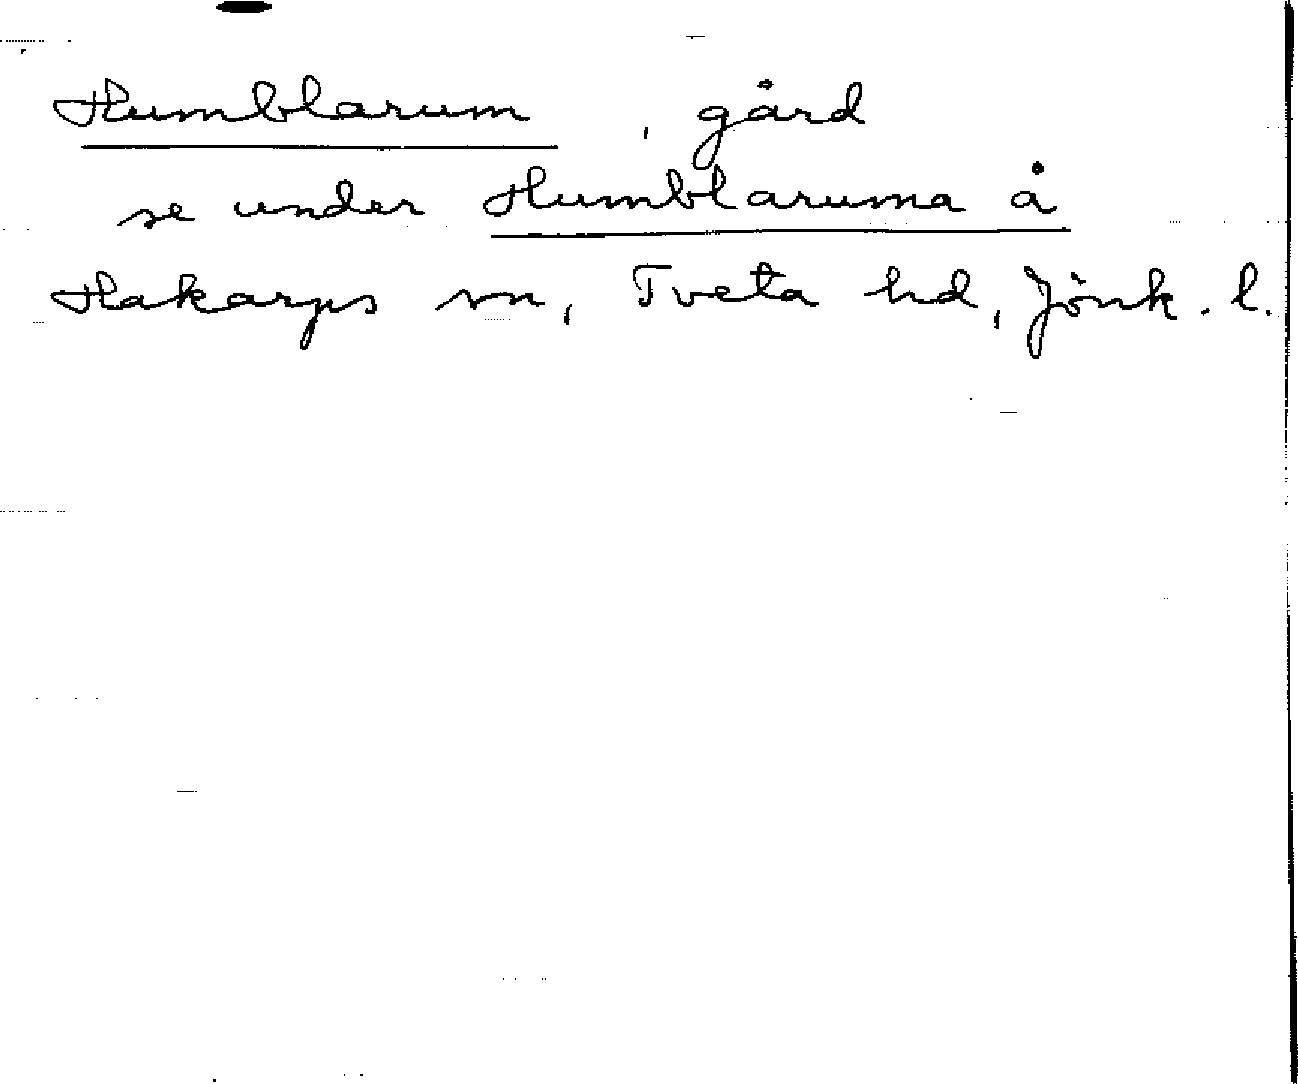 Humblarum, gård
se under Humblaruma å
Hakarps sn, Tveta hd, Jönk. l.